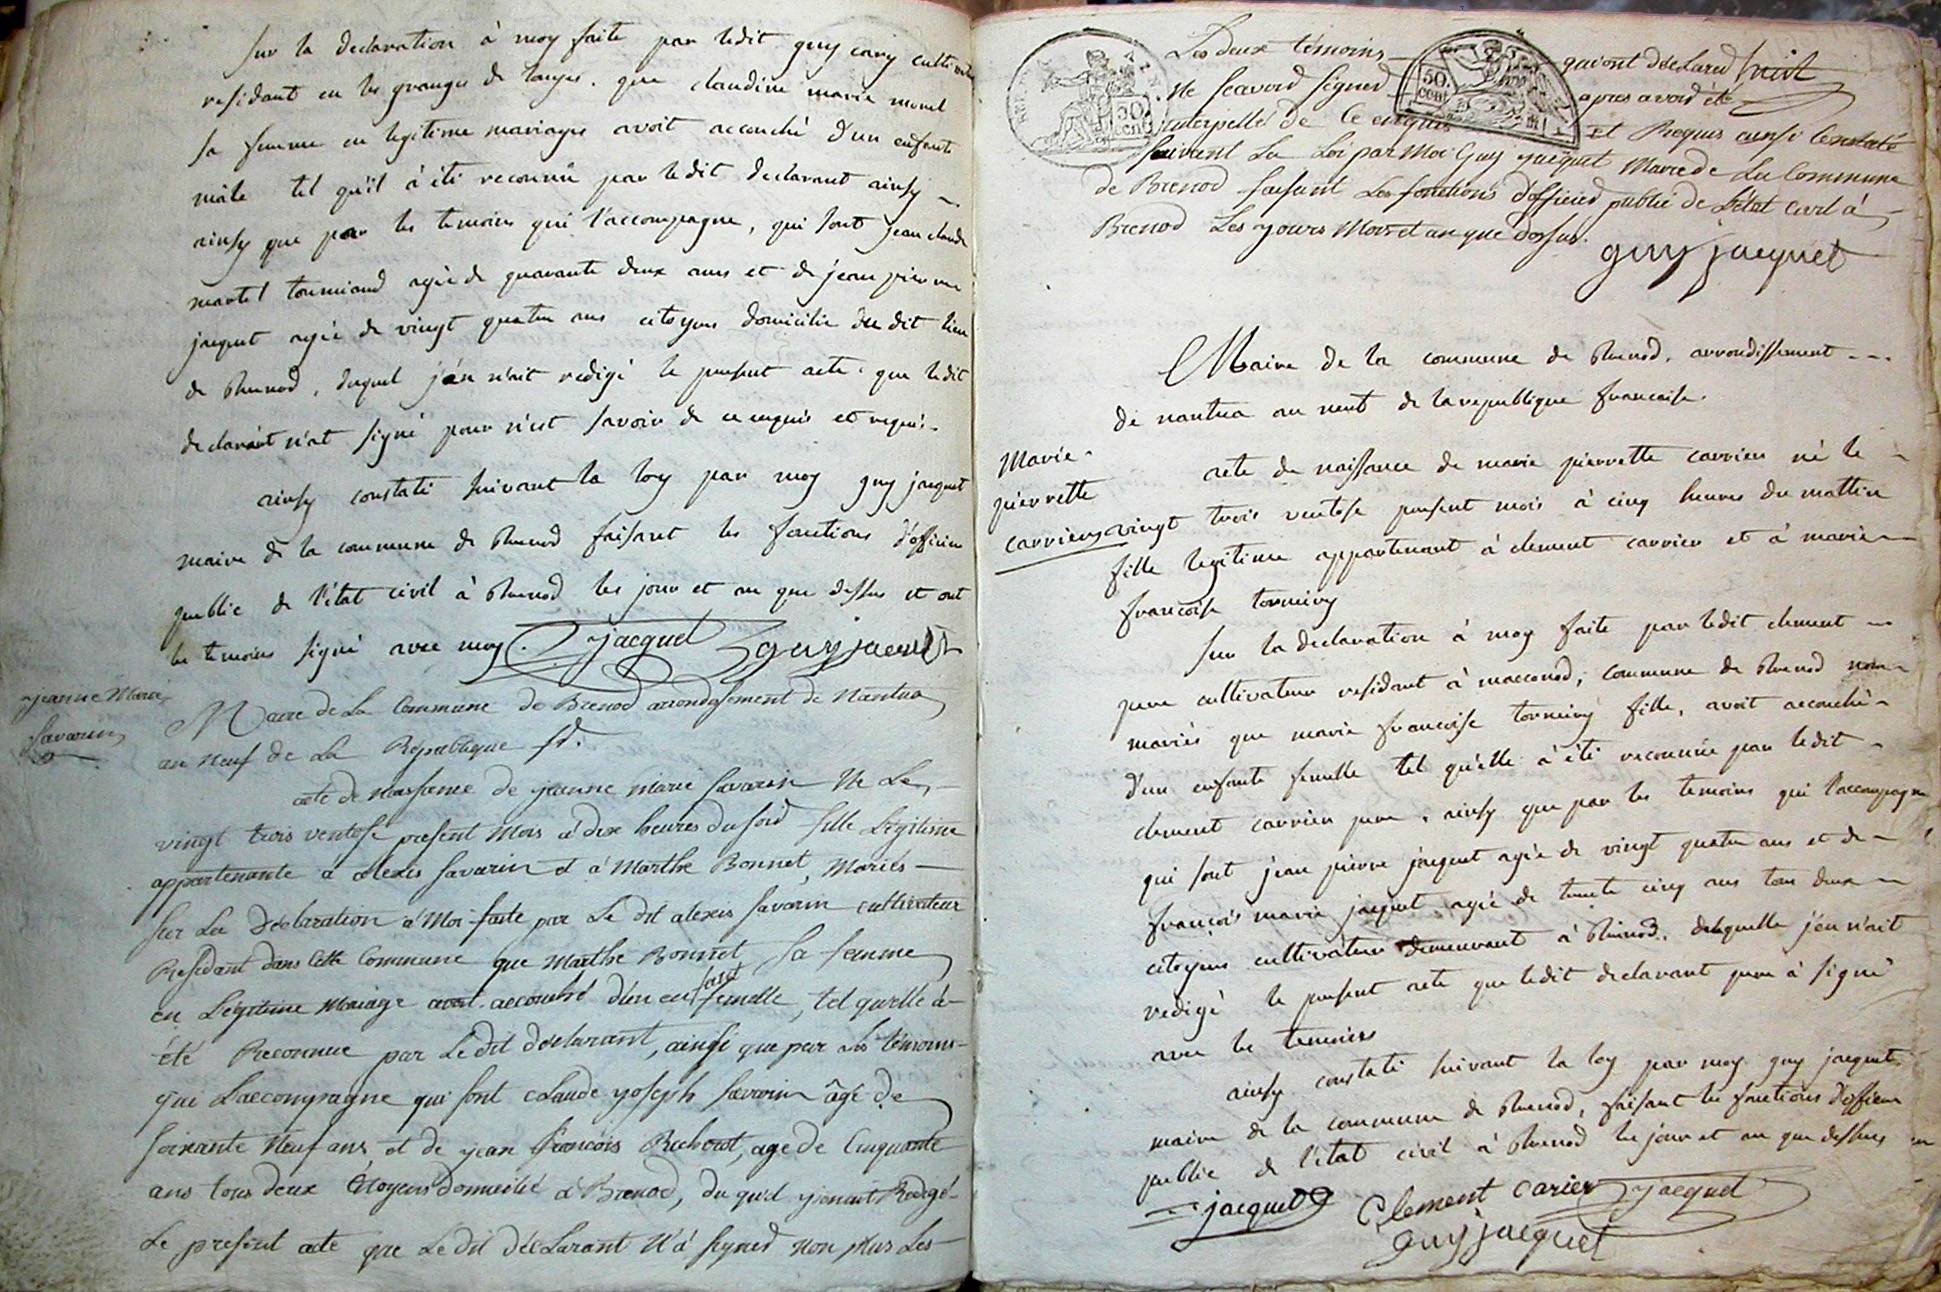 Sur la declaration à moy faite par ledit guy cary cultivateur
residant en les granges de . que claudine marie morel
sa femme en legitime mariage avoit accouché d'un enfant
mâle tel qu'il à été reconnû par ledit declarant ainsy
ainsy que par les temoins qui l'accompagne, qui sont jean claude
martel tourniand agé de quarante deux ans et de jean pierre
jacquet agé de vingt quatre ans citoyens domicilié du dit lieu
de Brenod, duquel j'en n'ait redigé le present acte. que ledit
declarant n'at signé pour n'est savoir de ce enquis et requi.
ainsy constaté suivant la loy par moy guy jacquet
maire de la commune de Brenod faisant les fonctions d'officier
public de l'état civil à Brenod les jour et an que dessus et ont
les temoins signé avec moy. jacquet guy jacquet
jeanne Marie
Savarin
Maire de La Commune de Brenod arrondissement de Nantua
an neuf de La Republique fr.
acte de naissance de jeanne marie Savarin Ne Le
vingt trois ventose present mois à dix heures du soir fille Légitime
appartenante a alexis Savarin et à Marthe Bonnet Mariés
Sur La Déclaration à Moi faite par Le dit alexis Savarin cultivateur
Residant dans cette Commune que Marthe Bonnet Sa femme
en Légitime Mariage avoit accouché d'un enfant femelle, tel quelle à
été Reconnue par Le dit déclarant, ainsi que par les témoins
qui L'accompagne qui sont claude yoseph Savarin âgé de
soixante Neuf ans et de jean françois Bucherat, age de Cinquante
ans tous deux Citoyens domicilié à Brenod, du quel y'enait Redigé
Le present acte que Le dit déclarant N'à signer non plus Les
Les deux témoins qui ont déclaré
Ne Seavoir signer après avoir été
interpellé de Ce enquis Et Requis ainsi Constaté
suivent La Loi par Moi Guy jacquet Maire de La Commune
de Brenod faisant Les fonctions d'officier public de L'état Civil à
Brenod Les yours Mois et an que dessus.
guy jacquet
50. cent
50 cent
Maire de la commune de Brenod. arrondissement
de nantua an neuf de la republique francaise.
Marie
pierrette
carrier
acte de naissance de marie pierrette carrier né le
vingt trois ventose present mois à cinq heures du mattin
fille legitime appartenant à clement carrier et à marie
francoise torniery
Sur la declaration à moy faite par ledit clement
pere cultivateur residant à macconod, commune de Brenod non
mariés que marie francoise torniery fille, avoit accouché
d'un enfante femelle tel qu'elle à été reconnüe par ledit
clement carrier pere, ainsy que par les temoins qui l'accompagne
qui sont jean pierre jacquet agée de vingt quatre ans et de
françois marie jacquet agée de trente cinq ans tous deux
citoyens cultivateur demeurant à Brenod. delaquelle j'en n'ait
redigé le present acte que ledit declarant pere à signé
avec les temoins
ainsy constaté suivant la loy par moy guy jacquet
maire de la commune de Brenod, faisant les fonctions d'officier
public de l'état civil à Brenod les jour et an que dessus
jacquet Clement carier jacquet
guy jacquet